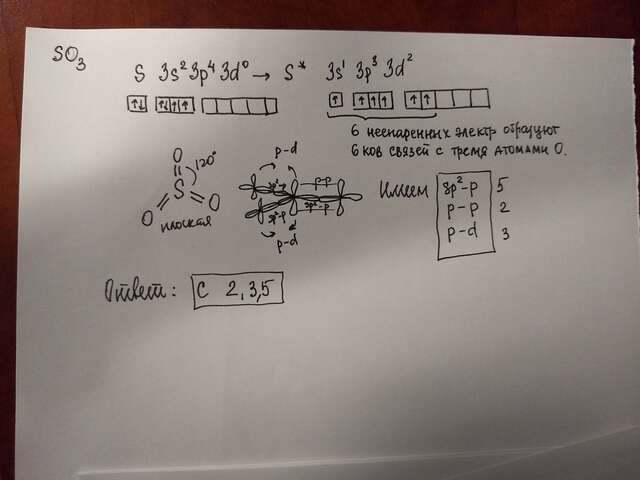 SO₃
S 3s² 3p⁴ 3d⁰ → S* 3s¹ 3p³ 3d²
6 неспаренных электр образуют
6 ков связей с тремя атомами О.
O
120°
S
O O
плоская
p-d
sp²-p p-p
sp²-p sp²-p
d
p-d
Имеем
sp²-p 5
p-p 2
p-d 3
Ответ: С 2,3,5